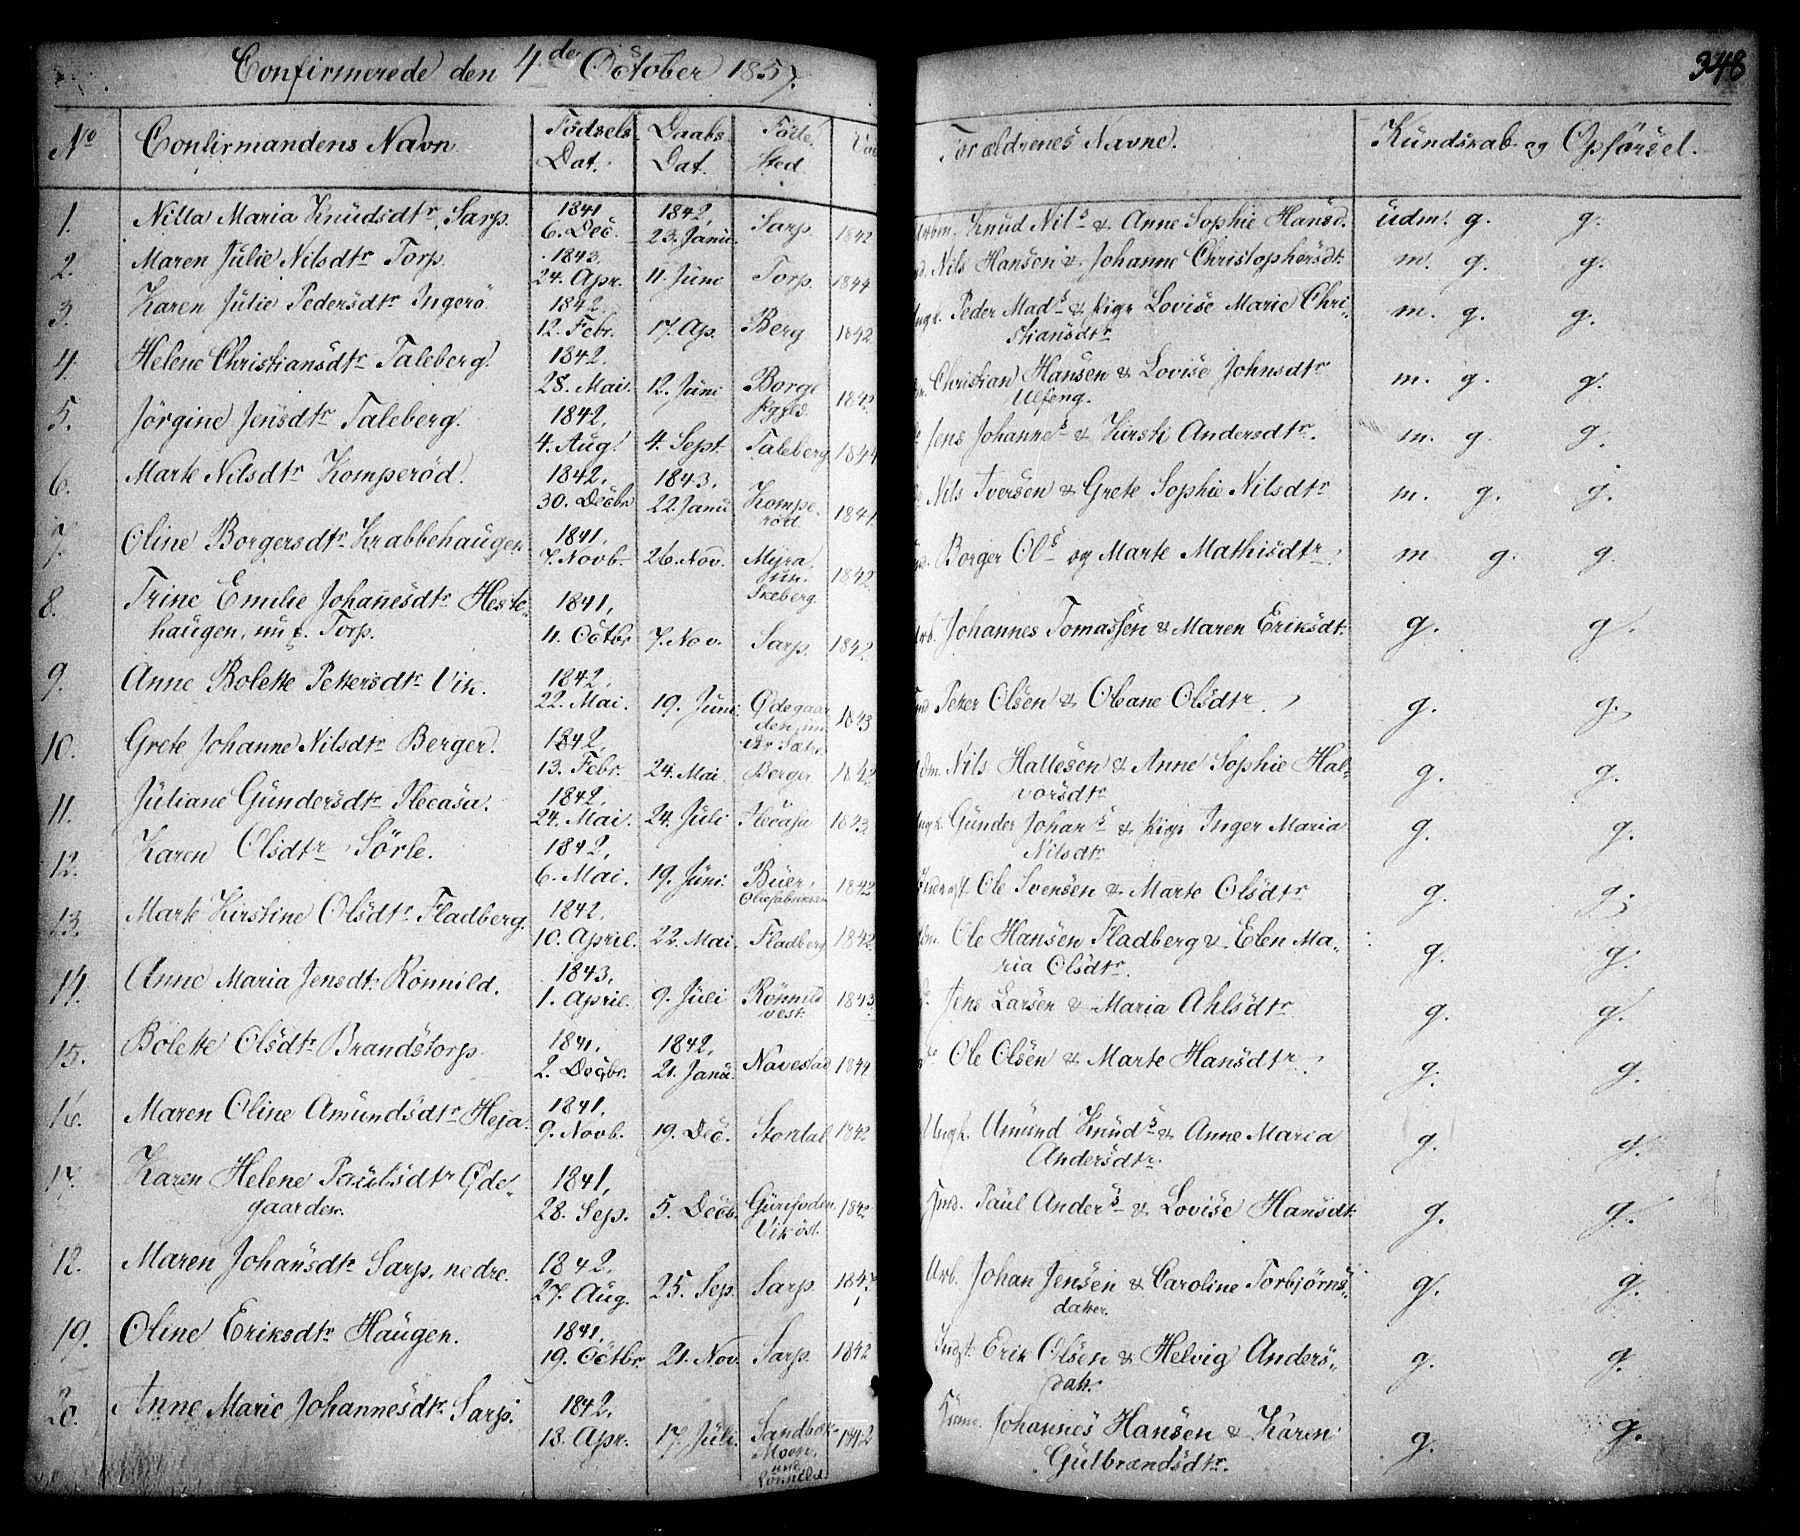 Confirmerede den 4de October 1857.
348
No Confirmandens Navn Fødsels Daabs Føde
Dat. Dat. Sted.
Forældrenes Navne. Kündskab og Opførsel.
1. Nilla Maria Knüdsdtr Sarp. 1841 6. Dec. 1842, 23. Janü. Sarp. 1842 Knüd Nils & Anne Sophie Hansd. üdm. g. g.
2. Maren Jülie Nilsdtr Torp. 1843. 24. Apr. 11. Jüni Torp. 1844 Nils Hansen & Johanne Christophersdt. m. g. g.
3. Karen Jülie Pedersdtr Ingerö. 1842. 12. Febr. 17. Ap. Berg 1842 Peder Mads & Pige Lovise Marie Chri-
stiansdtr m. g. g.
4. Helene Christiansdtr Taleberg. 1842. 28. Mai. 12. Jüni Borge 184 Christian Hansen & Lovise Johnsdtr
Ulfeng. m. g. g.
5. Jörgine Jensdtr Taleberg. 1842. 4. Aug. 4. Sept. Taleberg 1844 Jens Johannes & Kirsti Andersdtr. m. g. g.
6. Marte Nilsdtr Komperød. 1842. 30. Decbr 1843. 22. Janü Kompe-
rød 1841. Nils Iversen & Grete Sophie Nilsdtr m. g. g.
7. Oline Borgersdtr Krabbehaugen 1841. 7. Novb. 26. Nov. Myra,
ün.
Skeberg. 1842 Borger Ols og Marte Mathisdtr. m g. g.
8. Trine Emilie Johanesdtr Heste-
haügen, nu f. Torp. 1841, 4. Octbr 7. Nov. Sarp. 1842 Johannes Tomassen & Maren Eriksdt. g. g.
9. Anne Bolette Pettersdtr Vik. 1842. 22. Mai. 19. Jüni. Ødegaar
den, ün
der 1843 Petter Olsen & Oleane Olsdtr. g. g.
10. Grete Johanne Nilsdtr Berger. 1842. 13. Febr. 24. Mai. Berger 1842 Nils Hallesen & Anne Sophie Hal-
vorsdtr g. g.
11. Jüliane Gündersdtr 1842. 24. Mai. 24. Jüli 1843. Ungk. Günder Johans & Pige Inger Maria
Nilsdtr g. g.
12. Karen Olsdtr Sörle. 1842. 6. Mai. 19. Jüni. Büer, 1842 Ole Svensen & Marte Olsdtr g. g.
13. Marte Kirstine Olsdtr Fladberg. 1842. 10. April. 22. Mai. Fladberg 1842. Ole Hansen Fladberg & Elen Ma-
ria Olsdtr. g. g.
14. Anne Maria Jensdt. Rönnild. 1843. 1. April. 9. Jüli Rönnild
vest. 1843 Jens Larsen & Maria Ahlsdtr g. g.
15. Bolette Olsdtr Brandstorp. 1841. 2. Decbr. 1842. 21. Janü. Navestad 1844 Ole Olsen & Marte Hansdtr. g. g.
16. Maren Oline Amündsdtr Heja. 1841. 9. Novb. 19. Dec. Stordal 1842 Ungk. Amünd Knüds & Anne Maria
Andersdtr. g. g.
17. Karen Helene Paülsdtr Øde-
gaarden. 1841, 28. Sep. 5. Decb.
Vik öst. 184 Paül Anders & Lovise Hansdt. g. g.
18. Maren Johansdtr Sarp, nedre. 1842. 27. Aüg. 25. Sep. Sarp. 184 Arb. Johan Jensen & Caroline Torbjörns-
datter. g. g.
19. Oline Eriksdtr Haügen. 1841. 19. Octbr 21. Nov. Sarp. 1842 Erik Olsen & Helvig Anders-
datt. g. g.
20. Anne Marie Johannesdtr Sarp. 1842. 18. Apr. 17. Jüli.
Moen,
und 1842 Johannes Hansen & Karen
Gülbrandsdtr. g. g.